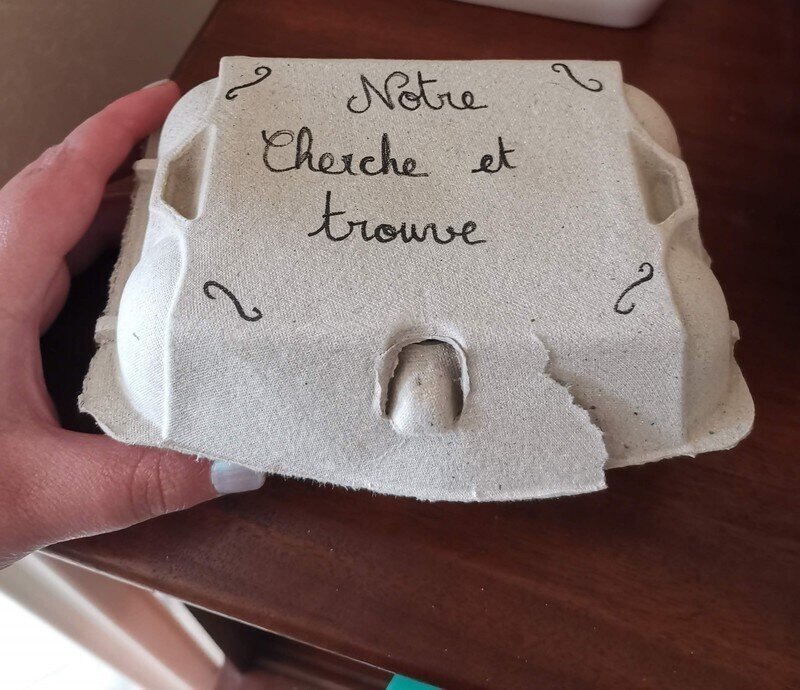 Notre
Cherche et
trouve